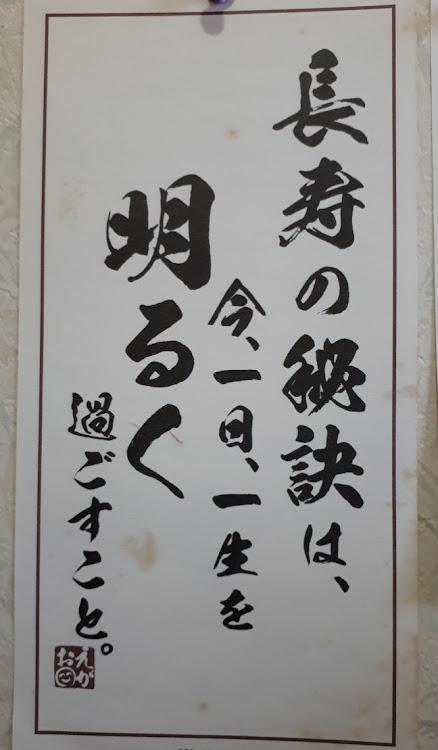 長寿の秘訣は、
今、一日、一生を
明るく
過ごすこと。
えが
お